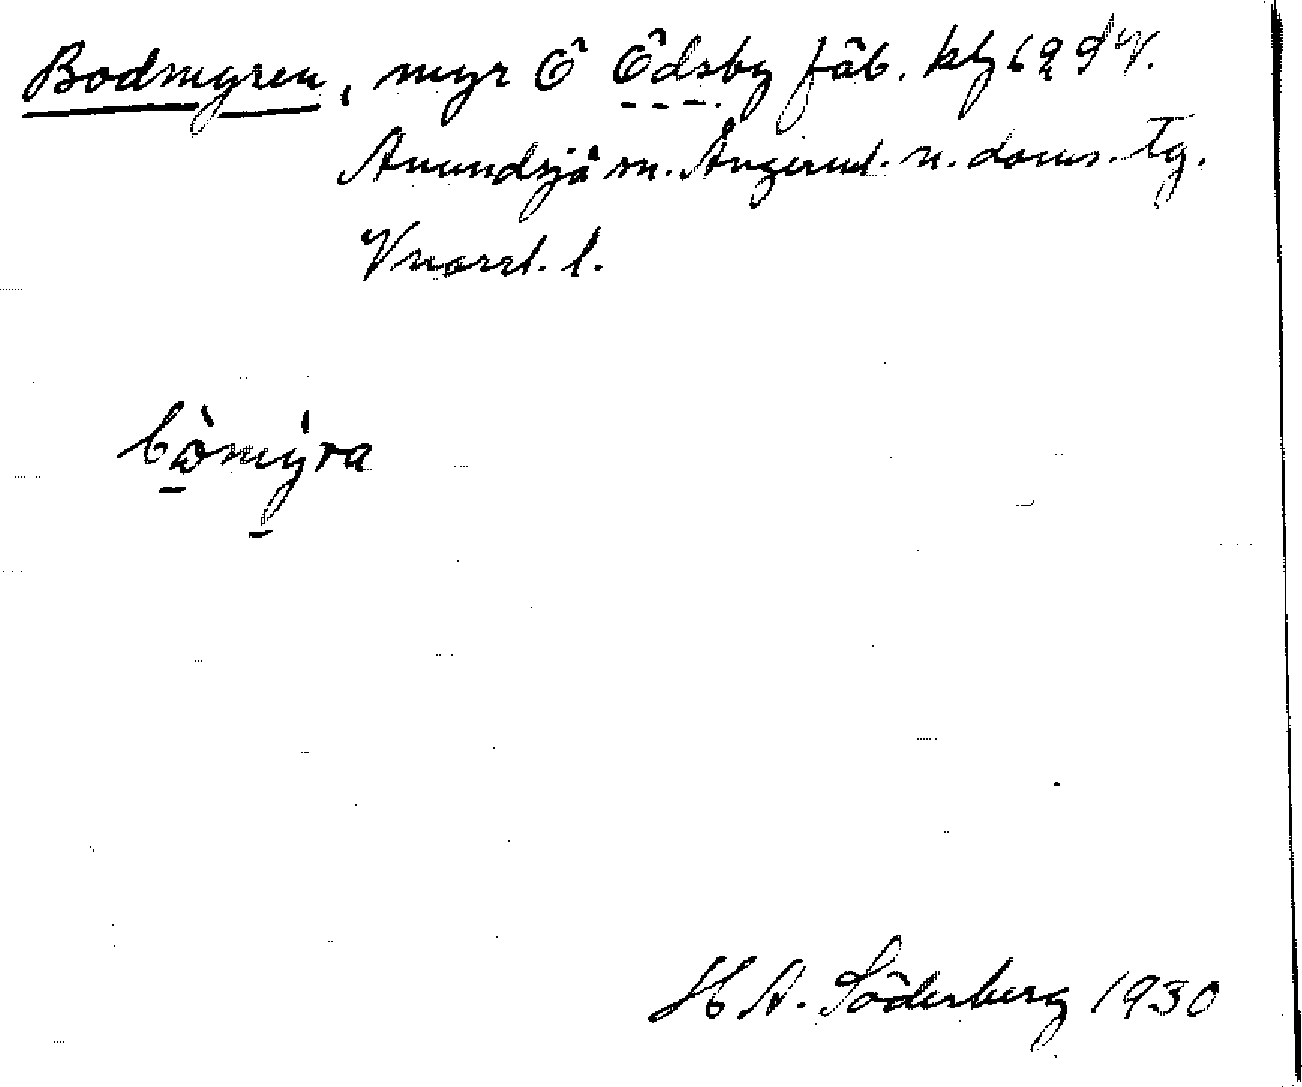 Bodmyren, myr Ö Ödsby fäb. kbl 62 SV.
Anundsjö sn. Ångerml. n. doms. Tg.
Vnorrl. l.
bò̱mý̱ra
H A. Söderberg 1930